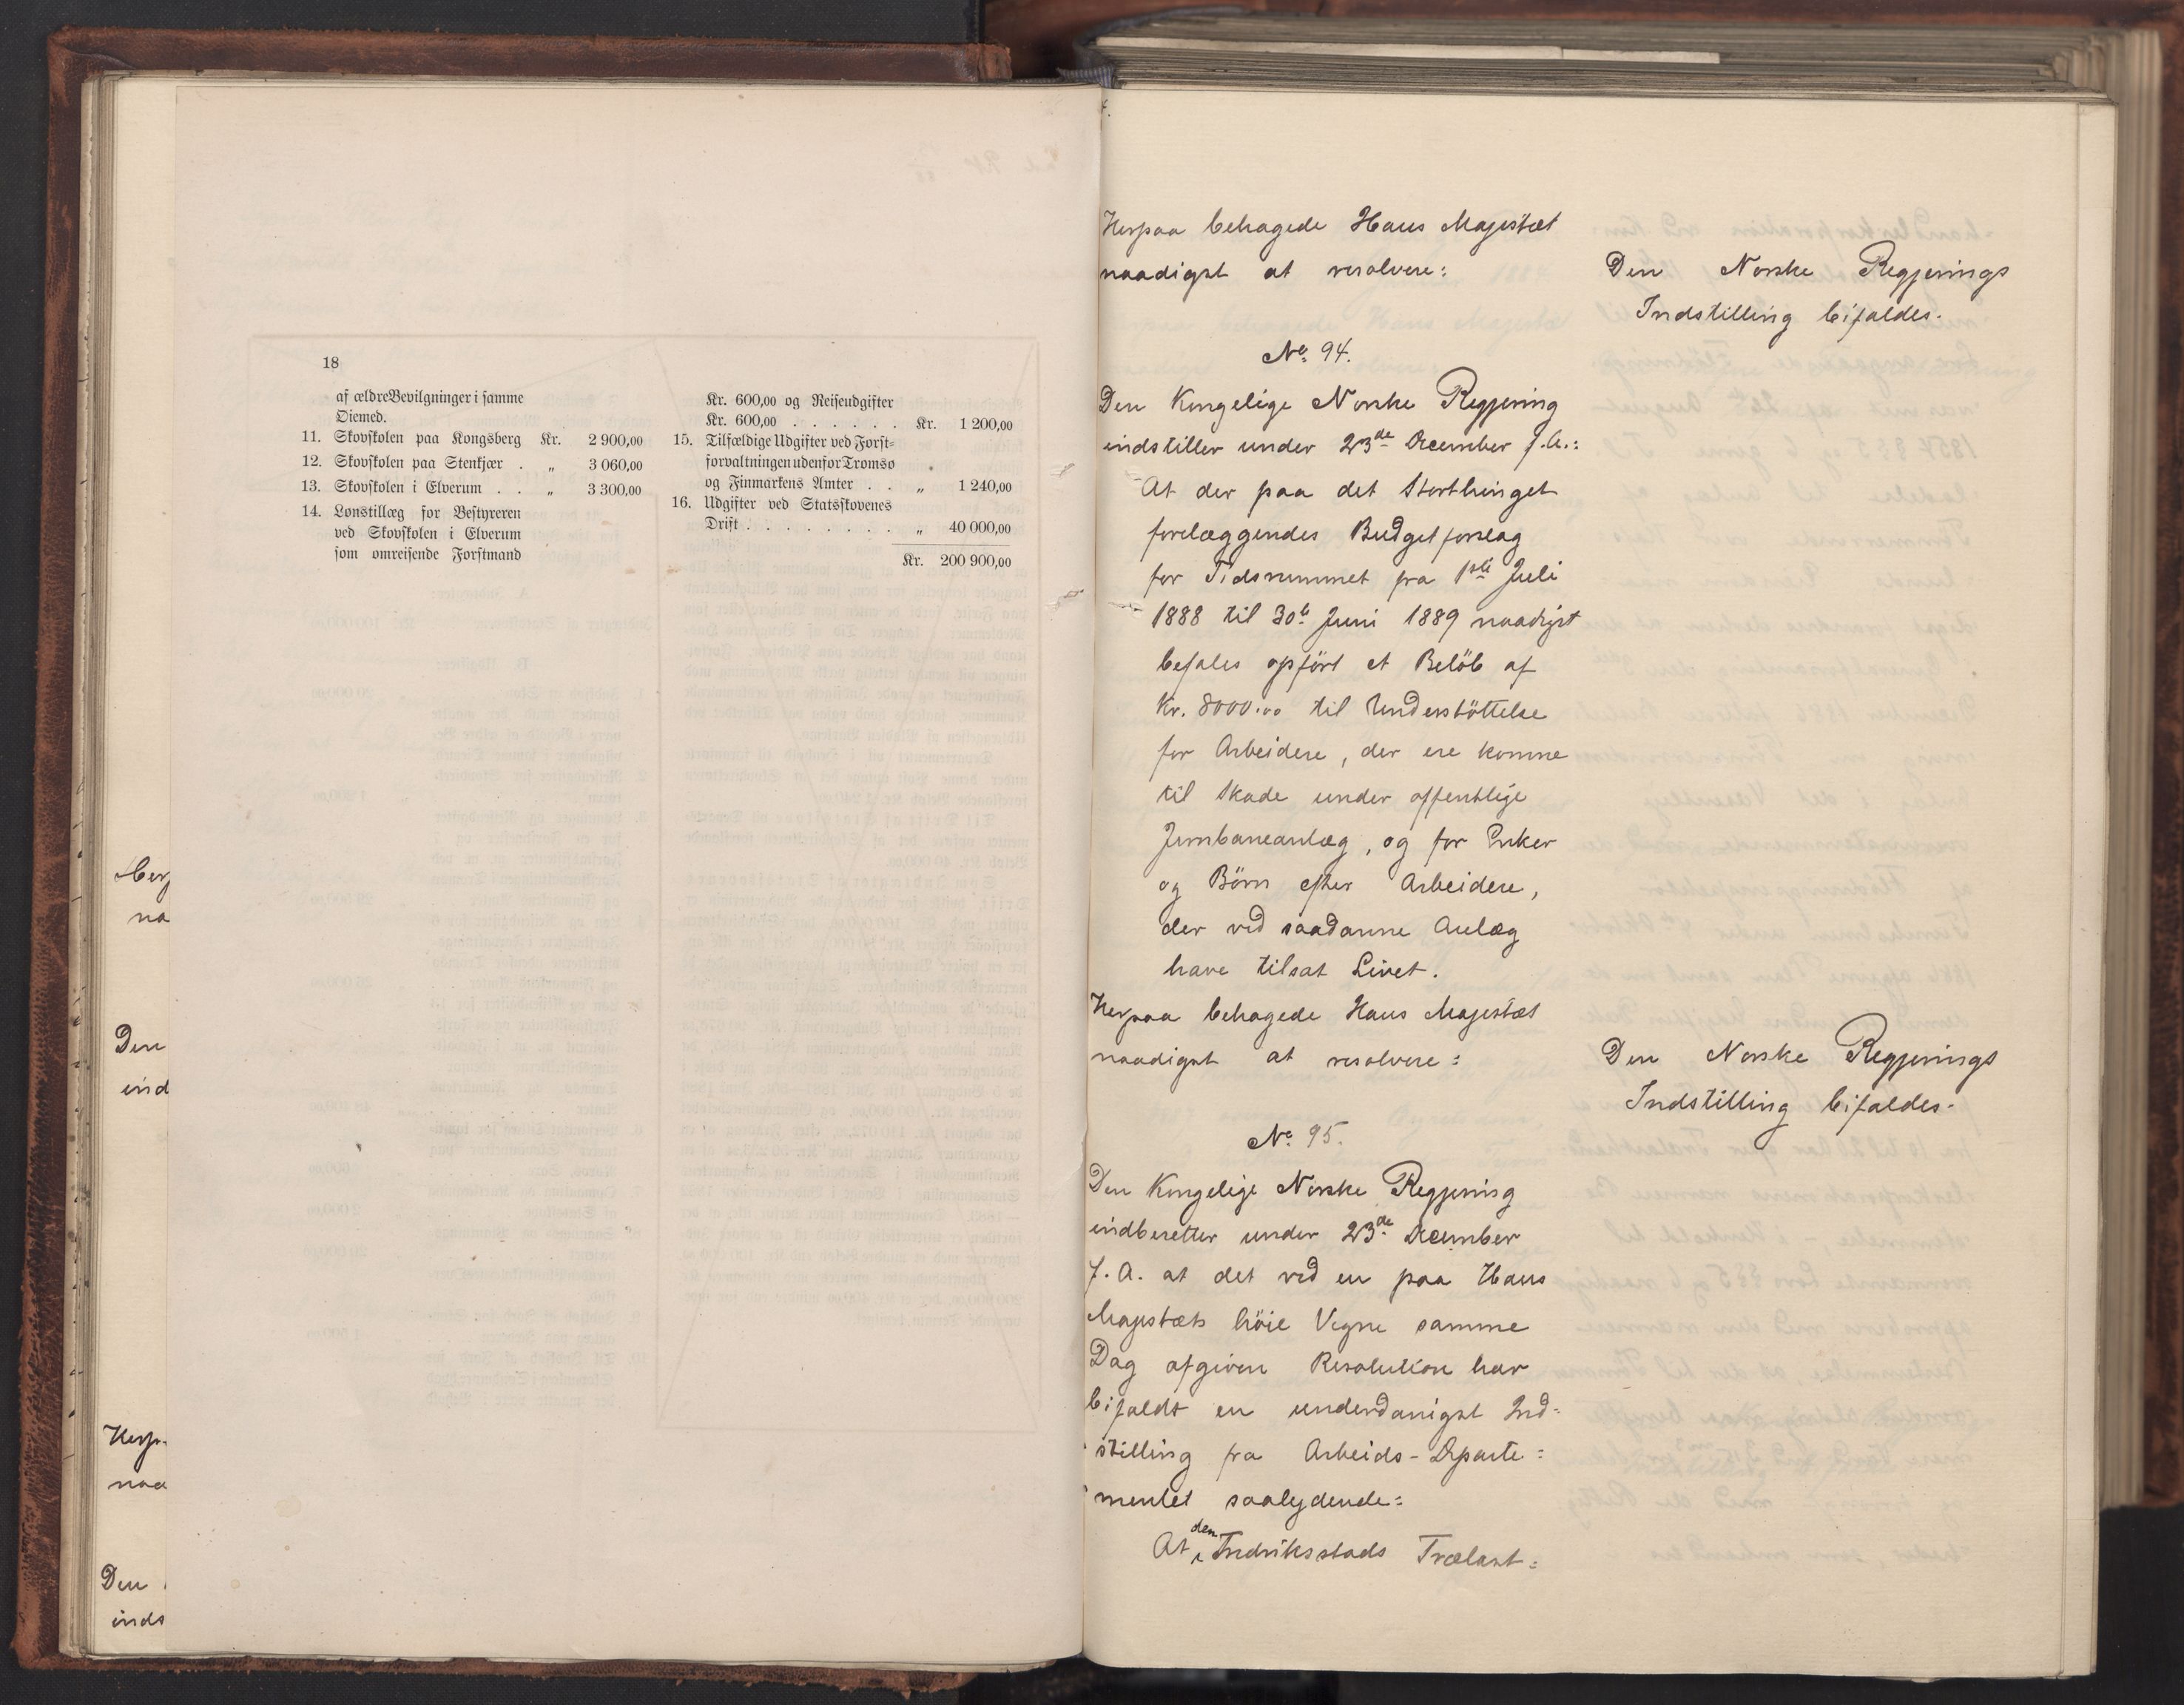 18
af ældre Bevilgninger i samme
Øiemed.
11. Skovskolen paa Kongsberg Kr. 2 900,00
12. Skovskolen paa Stenkjær . „ 3 060,00
13. Skovskolen i Elverum . . „ 3 300,00
14. Lønstillæg for Bestyreren
ved Skovskolen i Elverum
som omreisende Forstmand
Kr. 600,00 og Reiseudgifter
Kr. 600,00 . . . . . . Kr. 1 200,00
15. Tilfældige Udgifter ved Forst-
forvaltningen udenfor Tromsø
og Finmarkens Amter . . „ 1 240,00
16. Udgifter ved Statsskovenes
Drift . . . . . . . . „ 40 000,00
Kr. 200 900,00
na
Den
ind
Herp
naa
Den
inds
Herpaa behagede Hans Majestæt
naadigst at resolvere:
Den Norske Regjerings
Indstilling bifaldes.
No. 94.
Den Kongelige Norske Regjering
indstiller under 23de December f. A.:
At der paa det Storthinget
forelæggendes Budgetforslag
for Tidsrummet fra 1ste Juli
1888 til 30te Juni 1889 naadigst
befales opført et Beløb af
Kr. 8000.00 til Understöttelse
for Arbeidere, der ere komne
til Skade under offentlige
Jernbaneanlæg, og for Enker
og Börn efter Arbeidere,
der ved saadanne Anlæg
have tilsat Livet.
Herpaa behagede Hans Majestæt
naadigst at resolvere:
Den Norske Regjerings
Indstilling bifaldes.
No. 95.
Den Kongelige Norske Regjering
indberetter under 23de December
f. A. at det ved en paa Hans
Majestæts höie Vegne samme
Dag afgiven Resolution har
bifaldt en underdanigst Ind-
stilling fra Arbeids-Departe-
mentet saalydende:
At den Fredriksstads Trælast-